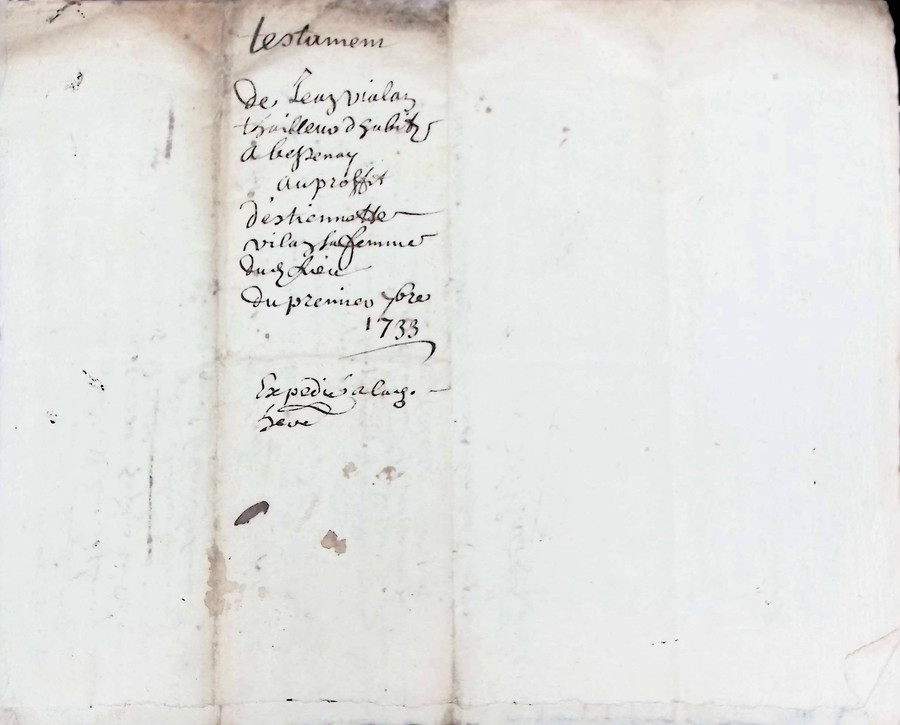 testament
de Jean vialan
thailleur d'habitz
a bessenay
au proffit
d'estiennette
vilan sa femme
dud lieu
du premier 9bre
1733
Expedié a lad.